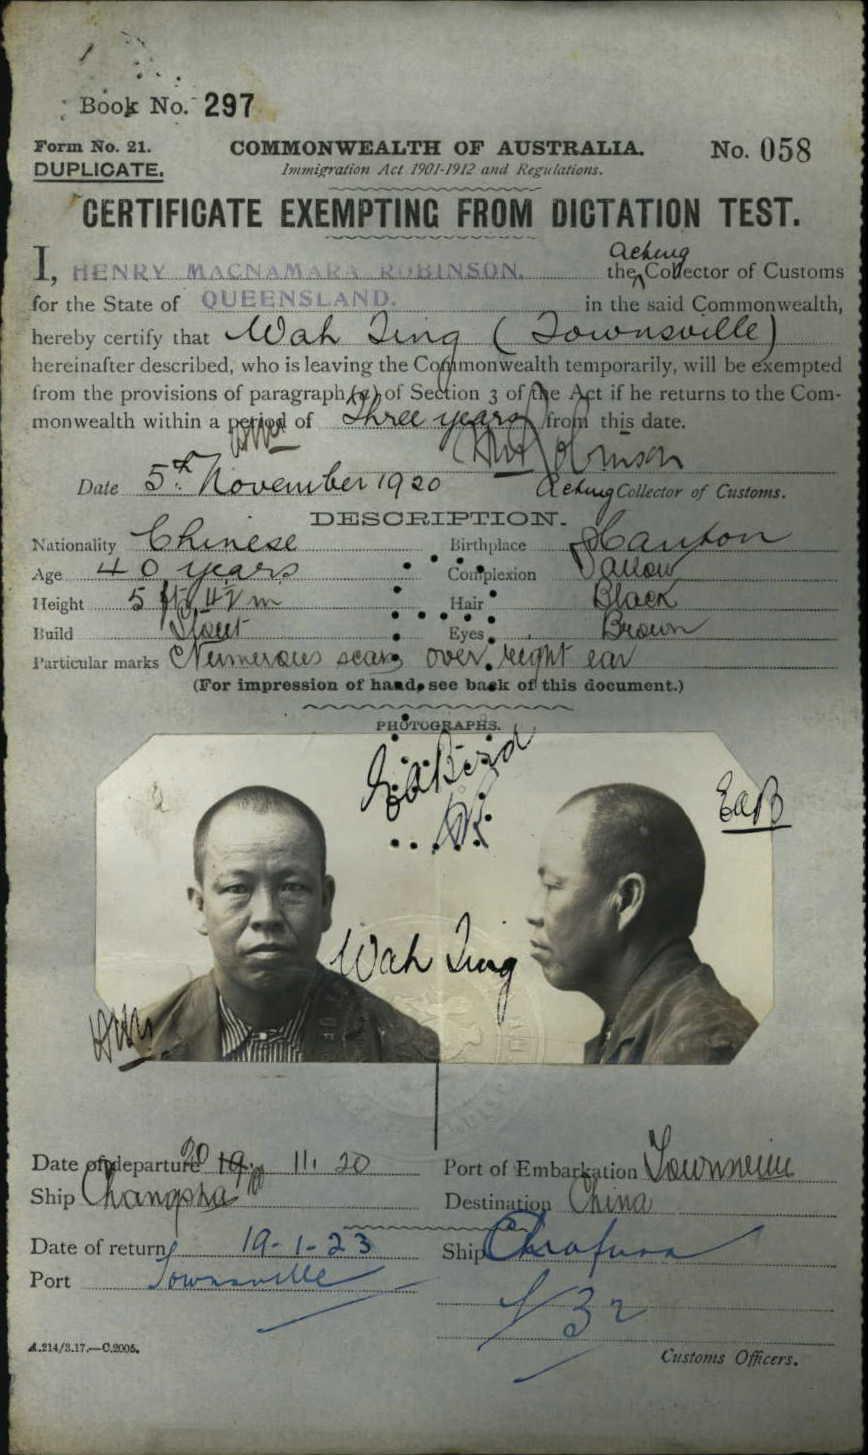 Book No. 297
Form No. 21.
DUPLICATE.
COMMONWEALTH OF AUSTRALIA.
Immigration Act 1901-1912 and Regulations.
No. 058
CERTIFICATE EXEMPTING FROM DICTATION TEST.
I, HENRY MACNAMARA ROBINSON, the Acting Collector of Customs
for the State of QUEENSLAND. in the said Commonwealth,
hereby certify that Wah Ting (Townsville)
hereinafter described, who is leaving the Commonwealth temporarily, will be exempted
from the provisions of paragraph (a) of Section 3 of the Act if he returns to the Com-
monwealth within a period of Three years from this date.
HM Robinson
Date 5th November 1920 Acting Collector of Customs.
DESCRIPTION.
Nationality Chinese Birthplace Canton
Age 40 years Complexion Sallow
Height 5 ft Hair Black
Build Stout Eyes Brown
Particular marks Numerous scars over right ear
(For impression of hand, see back of this document.)
PHOTOGRAPHS.
EaB
Wah Ting
Date of departure 20 19. 11. 20 Port of Embarkation Townsville
Ship Changsha Destination China
Date of return 19-1-23 Ship
Port Townsville
32
A.214/3.17.—C.2005.
Customs Officers.